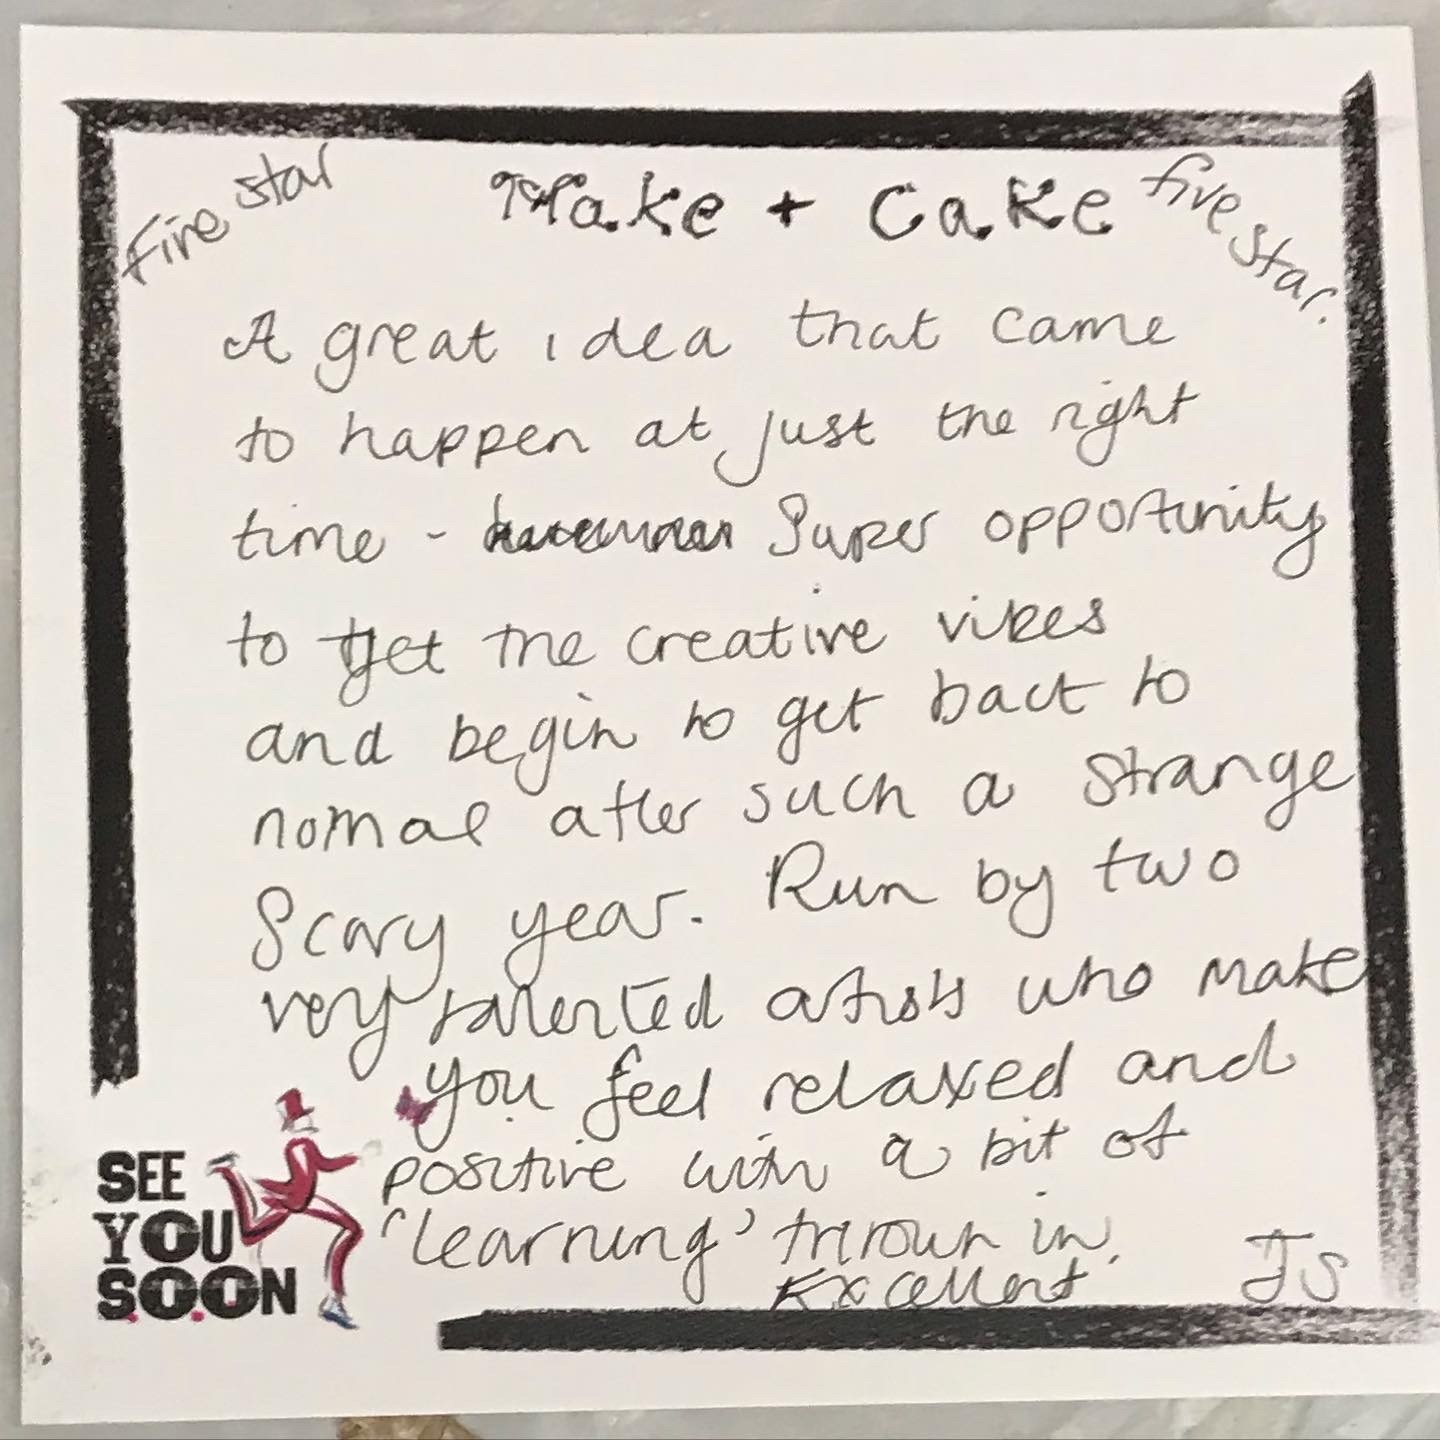 Five star
Make + Cake
five star.
A great idea that came
to happen at just the right
time - Super opportunity
to get the creative vibes
and begin to get back to
normal after such a strange
Scary year. Run by two
very talented artists who make
you feel relaxed and
positive with a bit of
'learning' thrown in.
Excellent
JS
SEE
YOU
SOON